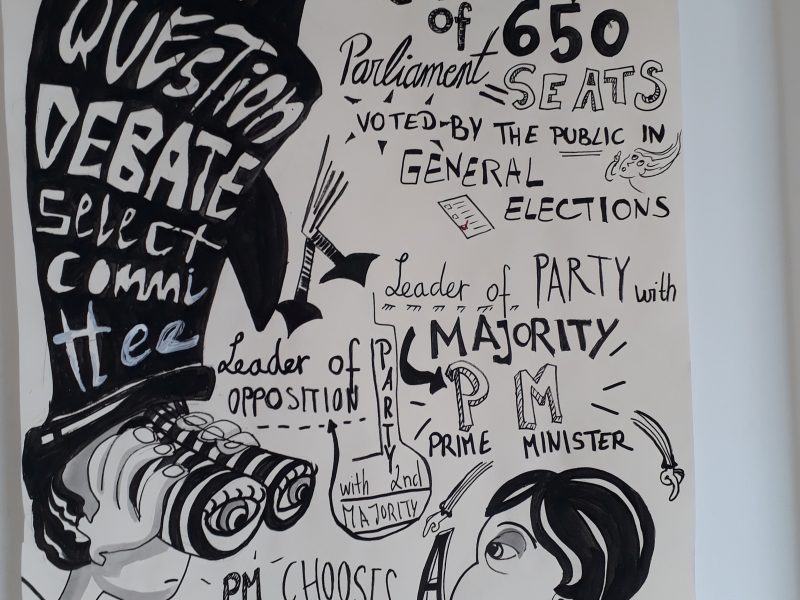 QUESTION
DEBATE
select
commi
ttee
of 650
Parliament SEATS
VOTED-BY THE PUBLIC IN
GENERAL
ELECTIONS
Leader of PARTY with
MAJORITY
PM
PRIME MINISTER
Leader of
OPPOSITION
PARTY
with 2nd
MAJORITY
PM CHOOSES A